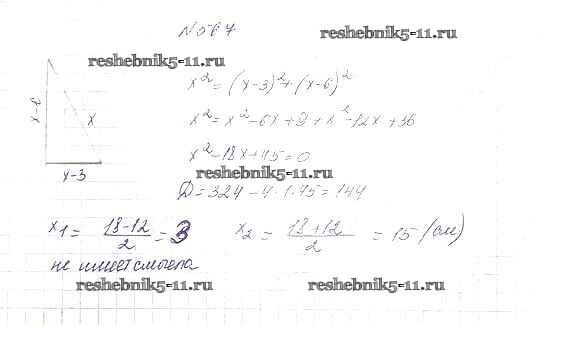 №567
reshebnik5-11.ru
reshebnik5-11.ru
x² = (x-3)² + (x-6)²
x-6
x
x² = x² - 6x + 9 + x² - 12x + 36
x² - 18x + 45 = 0
x-3
reshebnik5-11.ru
D = 324 - 4·1·45 = 144
x₁ = (18-12)/2 = 3
x₂ = (18+12)/2 = 15 (см)
не имеет смысла
reshebnik5-11.ru
reshebnik5-11.ru